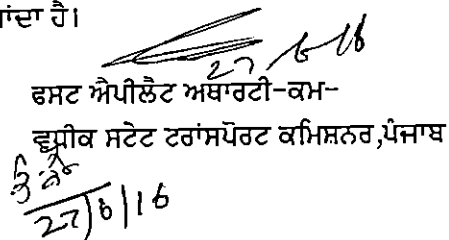 ਾਂਦਾ ਹੈ।
27/6/16
ਫਸਟ ਐਪੀਲੈਟ ਅਥਾਰਟੀ-ਕਮ-
ਵਧੀਕ ਸਟੇਟ ਟਰਾਂਸਪੋਰਟ ਕਮਿਸ਼ਨਰ,ਪੰਜਾਬ
27/6/16